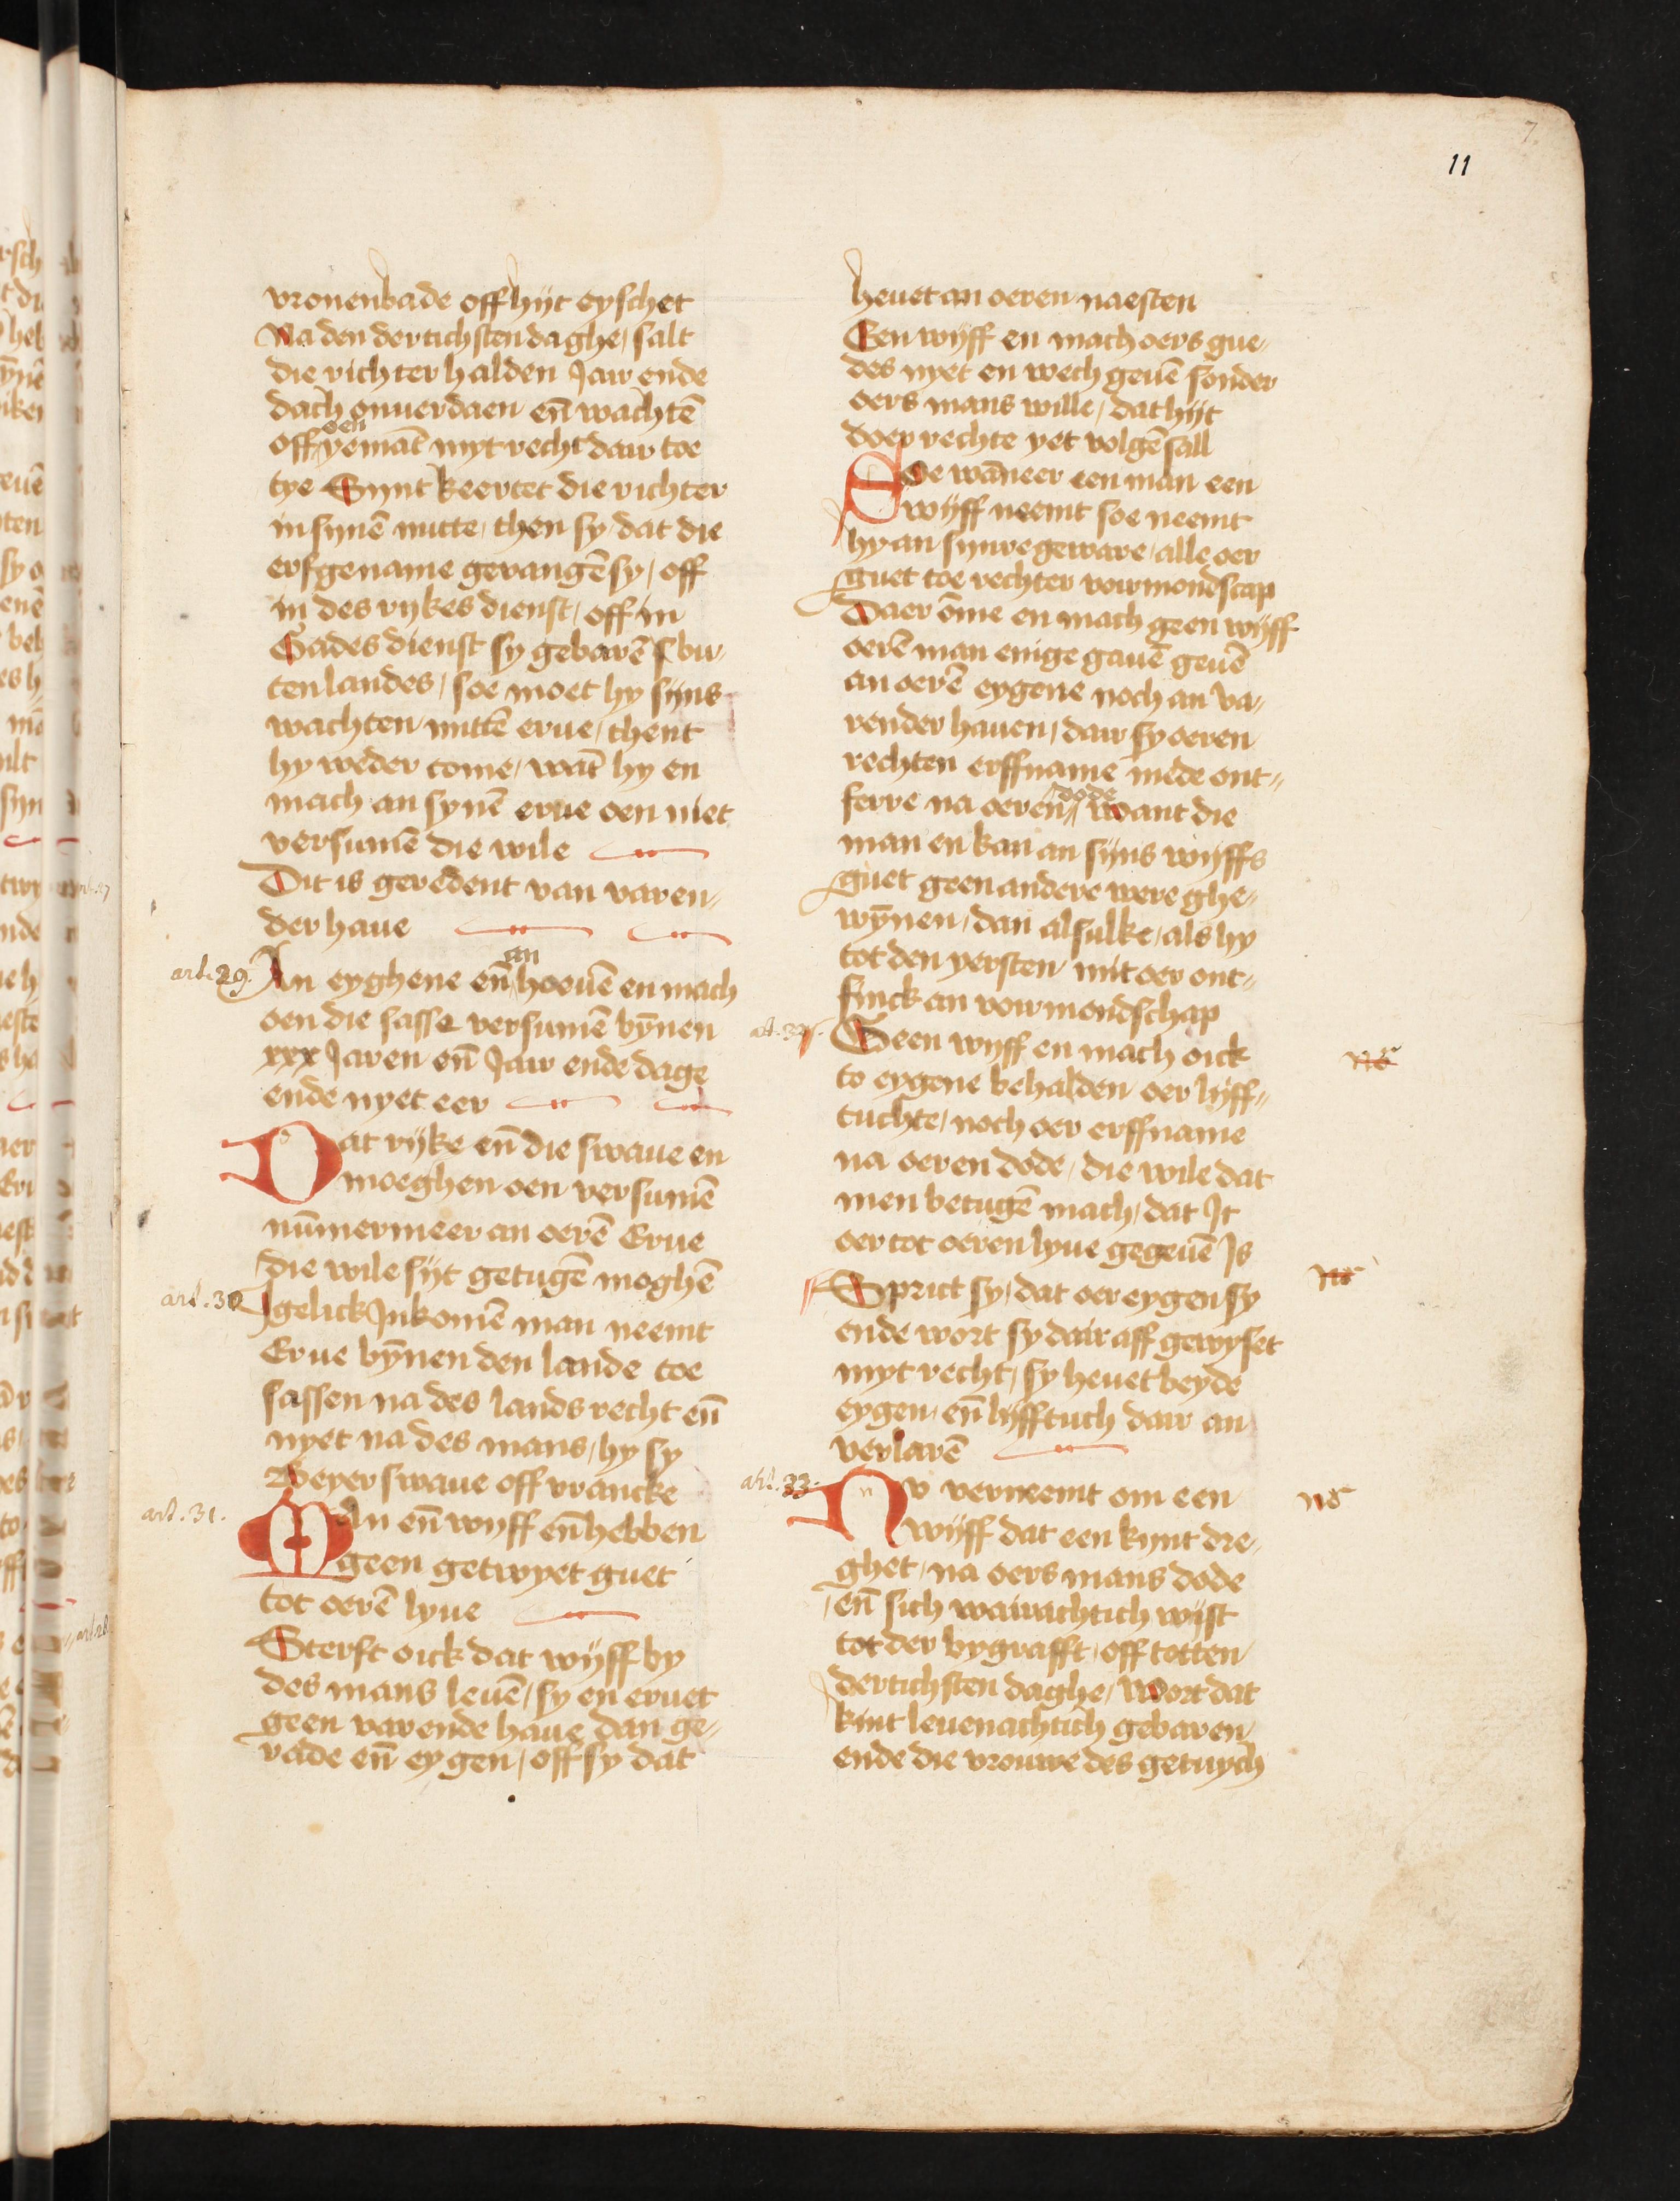 7
11
vronenbade off hijt eyschet
Na den dertichsten daghe / salt
die richter halden Jair ende
dach onuerdaen en̄ wachtē
off oen yemāt myt recht dair toe
tye Synt keertet die richter
in synē nutte / then sy / dat die
erfgename gevangē sy / off
in des rykes dienst / off in
Gades dienst sy gebarē / bu-
ten landes / soe moet hy syns
wachten mittē erue / thent
hy weder come / wāt hy en
mach an synē erue oen niet
versumē die wile
Dit is geredent van varen-
der haue
art. 29. An eyghene en̄ an hoeuē en mach
oen die sasse versumē bȳnen
xxx Jaren en̄ Jair ende dage
ende nyet eer
Dat rijke en̄ die swaue en
moeghen oen versumē
nūmermeer an oerē Erue
die wile sijt getugē moghē
art. 30 Jgelick Jnkomē man neemt
Erue bȳnen den lande toe
sassen na des lands recht en̄
nyet na des mans / hy sy
Beyer swaue off vrancke
art. 31. Man en̄ wyff en̄ hebben
geen getwyet guet
tot oerē lyue
Sterft oick dat wijff by
des mans leuē / sy en eruet
geen varende haue dan ge-
rade en̄ eygen / off sy dat
heuet an oeren naesten
Een wijff en mach oers gue-
des nyet en wech geuē sonder
oers mans wille / dat hijt
doer rechte yet volgē sall
Ade wāneer een man een
wijff neemt soe neemt
hy an synre geware / alle oer
guet toe rechter voirmondscap
Daer ōme en mach geen wijff
oerē man enige gauē geuē
an oerē eygene noch an va-
render hauen / dair sy oeren
rechten erffname mede ont-
ferre na oeren dode / Want die
man en kan an sijns wijffs
guet geen andere were ghe-
wȳnen / dan alsulke / als hy
tot den yersten mit oer ont-
finck an voirmondschap
art. 32. Geen wyff en mach oick
to eygene behalden oer lijff-
tuchte / noch oer erffname
na oeren dode / die wile dat
men betugē mach / dat Jt
oer tot oeren lyue gegeuē Js
Sprict sy / dat oer eygen sy
ende wort sy dair aff gewyset
myt recht / sy heuet beyde
eygen / en̄ lijfftuch dair an
verlarē
art. 33. Nv verneemt om een
wijff dat een kynt dre-
ghet / na oers mans dode
en̄ sich wairachtich wijst
tot der bygrafft / off totten
dertichsten daghe / Wort dat
kint leuenachtich gebaren
ende die vrouwe des getuych